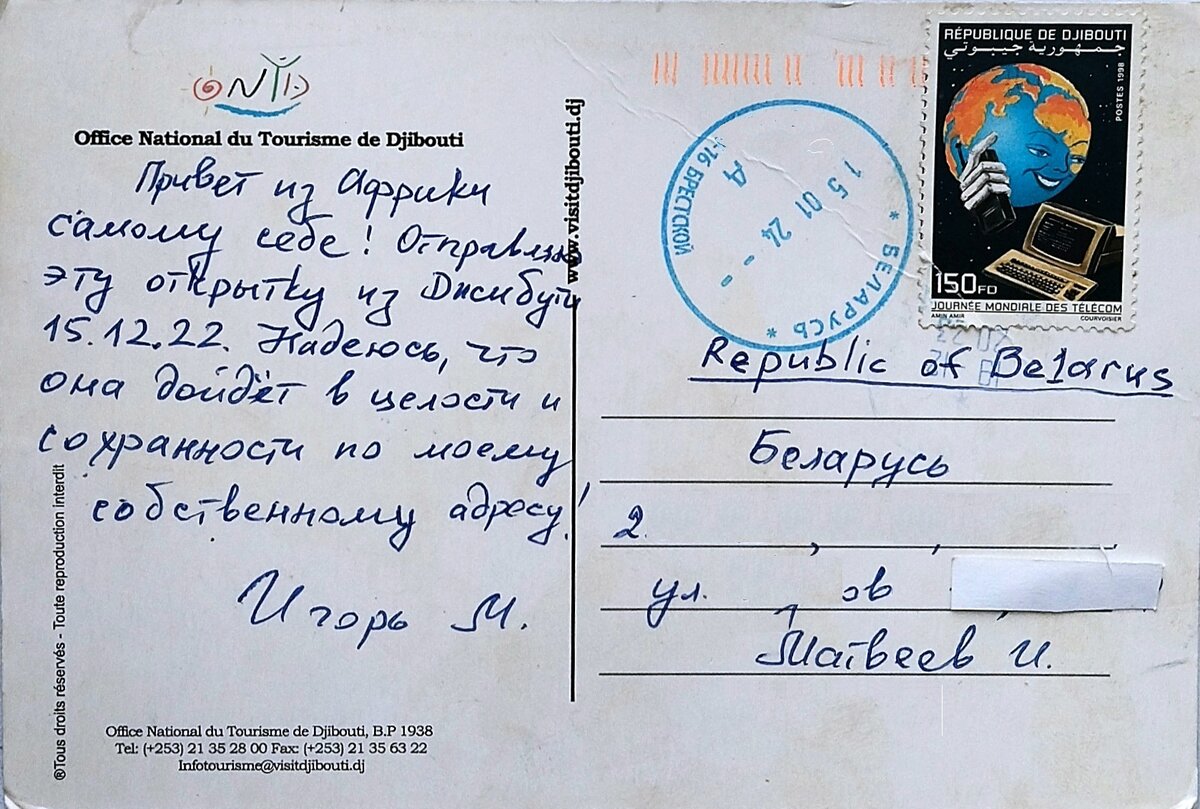 ONTD
Office National du Tourisme de Djibouti
Привет из Африки
самому себе! Отправляю
эту открытку из Джибути
15.12.22. Надеюсь, что
она дойдёт в целости и
сохранности по моему
собственному адресу!
Игорь М.
Office National du Tourisme de Djibouti, B.P 1938
Tel: (+253) 21 35 28 00 Fax: (+253) 21 35 63 22
Infotourisme@visitdjibouti.dj
®Tous droits réservés - Toute reproduction interdit
www.visitdjibouti.dj
* БЕЛАРУСЬ *
БРЕСТСКОЙ
15 01 24 - -
А
RÉPUBLIQUE DE DJIBOUTI
جمهورية جيبوتي
POSTES 1998
150FD
JOURNÉE MONDIALE DES TÉLÉCOM
AMIN AMIR
COURVOISIER
Republic of Belarus
Беларусь
2
ул. ов
Матвеев И.